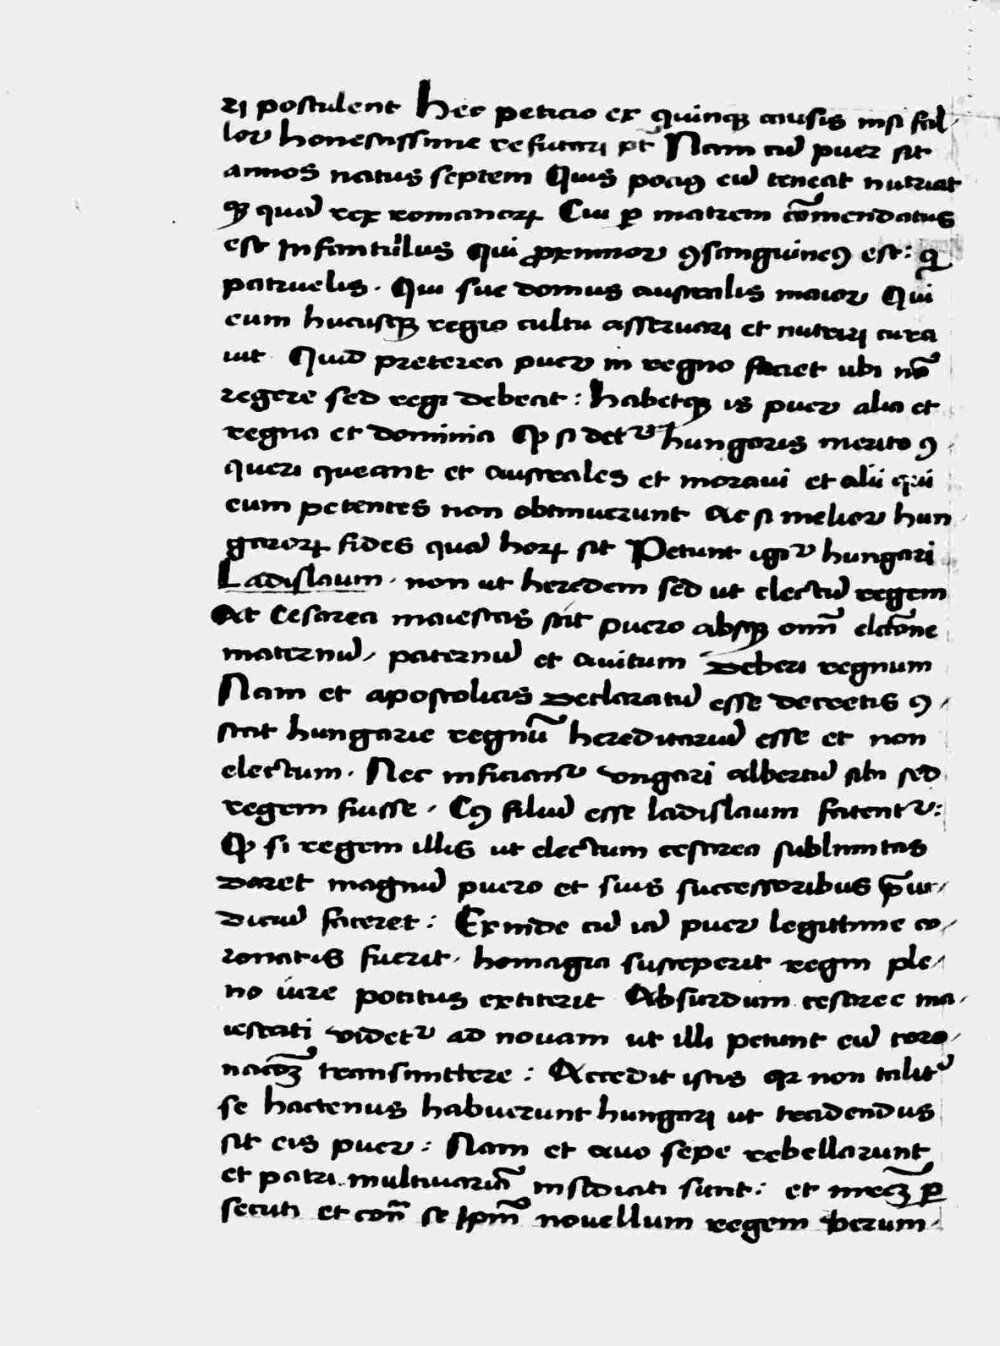 ri postulent Hec peticio ex quinqꝫ causis nisi fal-
lor honestissime refutari pt̄ Nam cū puer sit
annos natus septem Quis pociꝯ eū teneat nutriat
qꝫ quā rex romanorꝝ Cui ꝑ matrem cōmendatus
est Infantulus Qui ꝓximior ꝯsanguineꝯ est: qꝛ
patruelis. Qui sue domus australis maior Qui
eum hucusqꝫ regio cultu asseruari et nutriri cura
uit Quid preterea puer in regno faciet ubi nō
regere sed regi debeat: habetqꝫ is puer alia et
regna et dominia Qꝫ si detᷣ hungaris merito ꝯ-
queri queant et australes et moraui et alii qui
eum petentes non obtinuerunt Ac si melior hun
garorꝝ fides quā horꝝ sit Petunt igiᷣ hungari
Ladislaum. non ut heredem sed ut electū regem
At Cesarea maiestas scit puero absqꝫ omī elc̄cōne
maternū, paternū et auitum deberi regnum
Nam et apostolicis declaratū esse decretis ꝯ-
stat hungarie regnū hereditariū esse et non
electum. Nec inficianᷣ vngari albertū sibi sed
regem fuisse, Cꝯ filiū esse ladislaum fatentᷣ:
Qꝫ si regem illis ut electum cesarea sublimitas
daret magnū puero et suis successoribus p̄iu-
diciū faceret: Exinde cū iā puer legittime co-
ronatus fuerit, homagia susceperit regni ple-
no iure potitus extiterit Absurdum cesaree ma-
iestati videtᷣ ad nouam ut illi petunt eū coro-
nacōꝫ transmittere: Accedit istis qꝛ non talitᷣ
se hactenus habuerunt hungari ut tradendus
sit eis puer: Nam et auo sepe rebellarunt
et patri multiuariā insidiati sunt: et mr̄eꝫ ꝑ
secuti et con̄ se Ipm̄ nouellum regem verum-